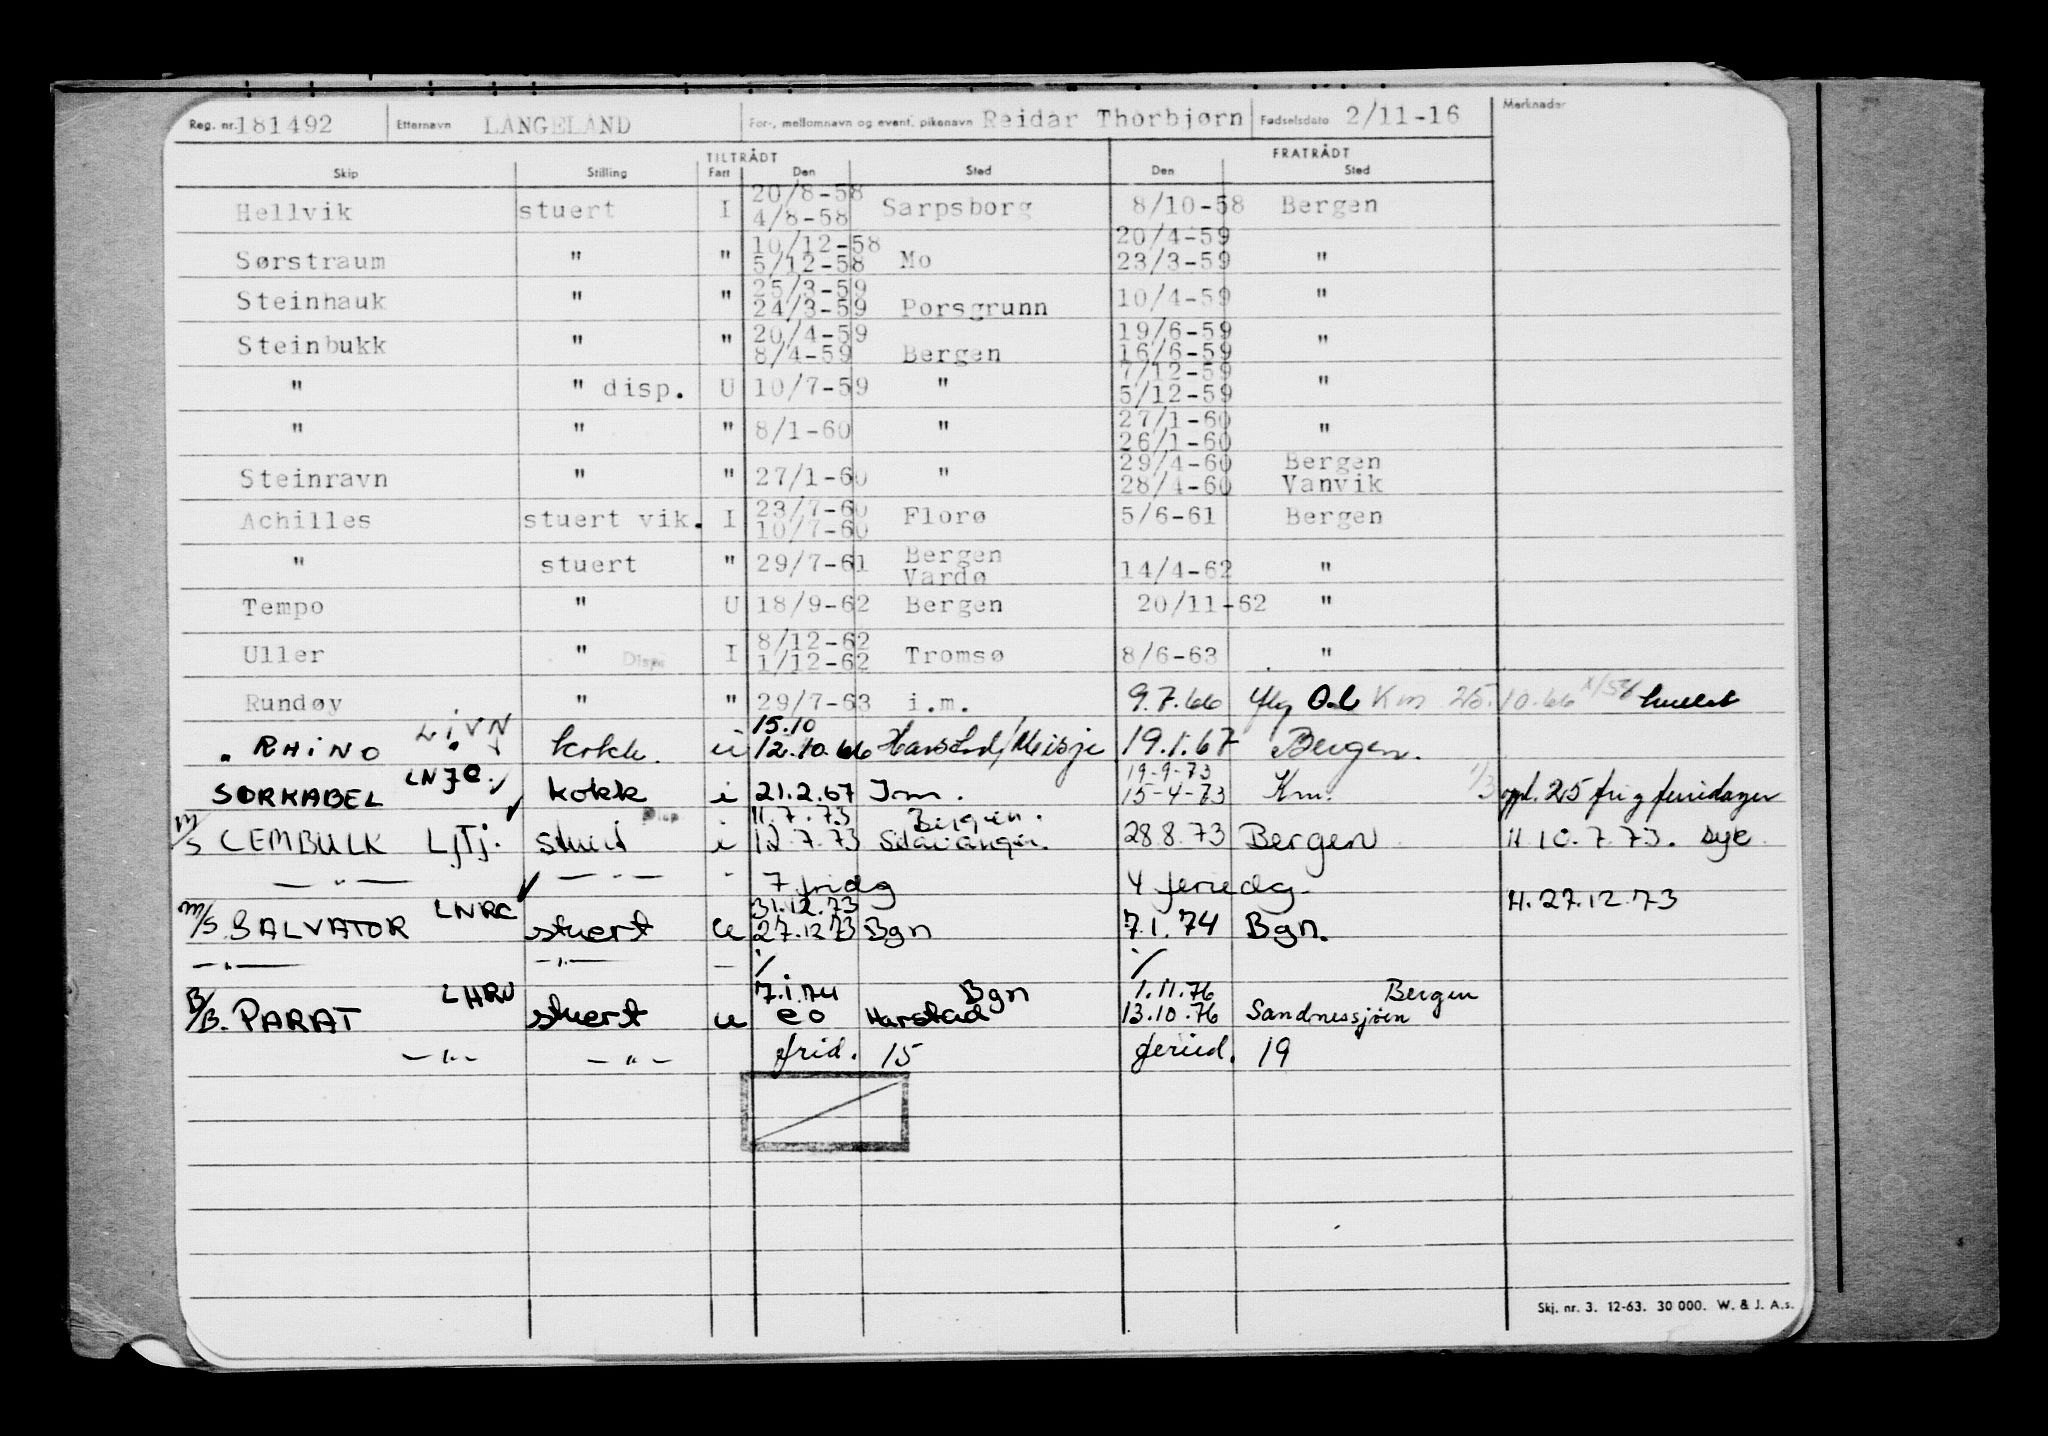 Reg. nr. 181492 Etternavn LANGELAND For-, mellomnavn og event. pikenavn Reidar Thorbjørn Fødselsdato 2/11-16 Merknader
TILTRÅDT FRATRÅDT
Skip Stilling Fart Den Sted Den Sted
20/8-58
Hellvik stuert I 4/8-58 Sarpsborg 8/10-58 Bergen
10/12-58 20/4-59
Sørstraum " " 5/12-58 Mo 23/3-59 "
25/3-59
Steinhauk " " 24/3-59 Porsgrunn 10/4-59 "
20/4-59 19/6-59
Steinbukk " " 8/4-59 Bergen 16/6-59 "
7/12-59
" " disp. U 10/7-59 " 5/12-59 "
27/1-60
" " " 8/1-60 " 26/1-60 "
29/4-60 Bergen
Steinravn " " 27/1-60 " 28/4-60 Vanvik
23/7-60
Achilles stuert vik. I 10/7-60 Florø 5/6-61 Bergen
Bergen
" stuert " 29/7-61 Vardø 14/4-62 "
Tempo " U 18/9-62 Bergen 20/11-62 "
8/12-62
Uller " Disp. I 1/12-62 Tromsø 8/6-63 "
Rundøy " " 29/7-63 i.m. 9.7.66 Km 25.10.66
15.10
" RHINO LIVN kokk. i 12.10.66 Harstad/ 19.1.67 Bergen.
19-9-73
SØRKABEL LNJC kokk i 21.2.67 I.m. 15-4-73 Km. oppl. 25 fri g feriedager
11.7.73 Bergen.
M/S CEMBULK LJTJ. stuert Disp i 12.7.73 Stavanger. 28.8.73 Bergen H 10.7.73. syk
— " — — " — " 7 fridg 4 feriedg.
31.12.73 H. 27.12.73
M/S. SALVATOR LNRC stuert u 27.12.73 Bgn 7.1.74 Bgn.
— " — — " — — ./ ./
7.1.74 Bgn 1.11.76 Bergen
B/B. PARAT LHRU stuert u eo Harstad 13.10.76 Sandnessjøen
— " — — " — frid. 15 feried. 19
Skj. nr. 3. 12-63. 30 000. W. & J. A.s.